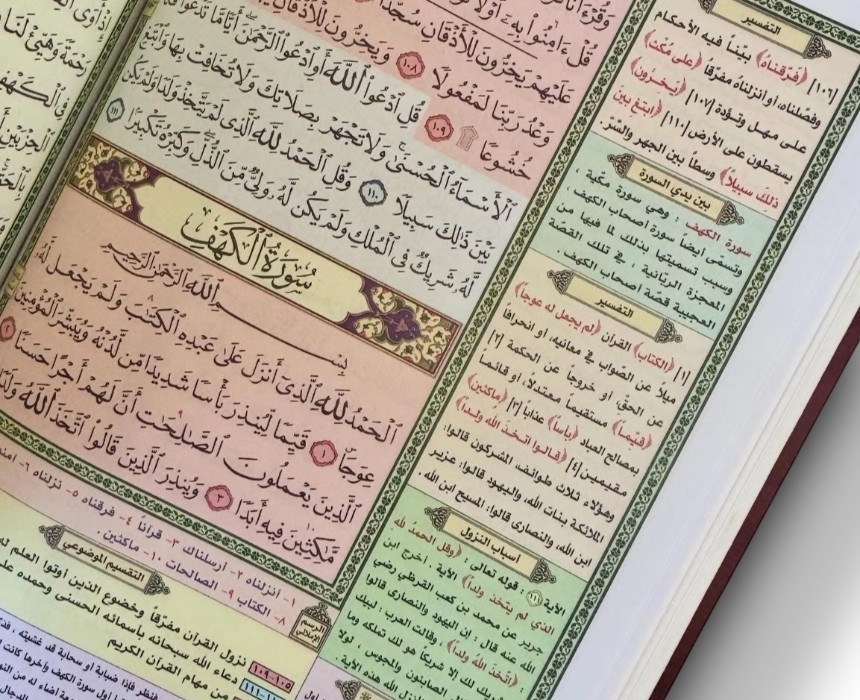 قُلْ ءَامِنُوا۟ بِهِۦٓ أَوْ لَا
عَلَيْهِمْ يَخِرُّونَ لِلْأَذْقَانِ سُجَّدًا
وَعْدُ رَبِّنَا لَمَفْعُولًا ١٠٨ وَيَخِرُّونَ لِلْأَذْقَانِ
خُشُوعًا ١٠٩ قُلِ ٱدْعُوا۟ ٱللَّهَ أَوِ ٱدْعُوا۟ ٱلرَّحْمَٰنَ أَيًّا مَّا تَدْعُوا۟
ٱلْأَسْمَآءُ ٱلْحُسْنَىٰ وَلَا تَجْهَرْ بِصَلَاتِكَ وَلَا تُخَافِتْ بِهَا وَٱبْتَغِ
بَيْنَ ذَٰلِكَ سَبِيلًا ١١٠ وَقُلِ ٱلْحَمْدُ لِلَّهِ ٱلَّذِى لَمْ يَتَّخِذْ وَلَدًا وَلَمْ يَكُن
لَّهُۥ شَرِيكٌ فِى ٱلْمُلْكِ وَلَمْ يَكُن لَّهُۥ وَلِىٌّ مِّنَ ٱلذُّلِّ وَكَبِّرْهُ تَكْبِيرًۢا ١١١
سُورَةُ الْكَهْفِ
بِسْمِ ٱللَّهِ ٱلرَّحْمَٰنِ ٱلرَّحِيمِ
ٱلْحَمْدُ لِلَّهِ ٱلَّذِىٓ أَنزَلَ عَلَىٰ عَبْدِهِ ٱلْكِتَٰبَ وَلَمْ يَجْعَل لَّهُۥ
عِوَجَا ١ قَيِّمًا لِّيُنذِرَ بَأْسًا شَدِيدًا مِّن لَّدُنْهُ وَيُبَشِّرَ ٱلْمُؤْمِنِينَ
ٱلَّذِينَ يَعْمَلُونَ ٱلصَّٰلِحَٰتِ أَنَّ لَهُمْ أَجْرًا حَسَنًا ٢
مَّٰكِثِينَ فِيهِ أَبَدًا ٣ وَيُنذِرَ ٱلَّذِينَ قَالُوا۟ ٱتَّخَذَ ٱللَّهُ وَلَدًا
الرسم الإملائي
١- انزلناه ٢- ارسلناك ٣- قرآناً ٤- فرقناه ٥- نزلناه ٦-
٨- الكتاب ٩- الصالحات ١٠- ماكثين .
التقسيم الموضوعي
١٠٥-١٠٩ نزول القرآن مفرّقاً وخضوع الذين أوتوا العلم
دعاء الله سبحانه بأسمائه الحسنى وحمده
من مهام القرآن الكريم
التفسير
[١٠٦] ﴿فَرَقْنَاهُ﴾ بيّنا فيه الأحكام
وفصّلناه، أو انزلناه مفرّقاً ﴿على مُكْث﴾
على مهل وتؤدة [١٠٧] ﴿يَخِرُّون﴾
يسقطون على الأرض [١١٠] ﴿ابتغ بين
ذلك سبيلاً﴾ وسطاً بين الجهر والسّر.
بين يدي السورة
سورة الكهف : وهي سورة مكية ،
وتسمّى أيضاً سورة أصحاب الكهف ،
وسبب تسميتها بذلك لما فيها من
المعجزة الربّانية ، في تلك القصة
العجيبة قصة أصحاب الكهف .
التفسير
[١] ﴿الكتاب﴾ القرآن ﴿لم يجعل له عوجاً﴾
ميلاً عن الصّواب في معانيه، أو انحرافاً
عن الحقّ، أو خروجاً عن الحكمة [٢]
﴿قيّماً﴾ مستقيماً معتدلاً، أو قائماً
بمصالح العباد ﴿بأساً﴾ عذاباً [٣] ﴿ماكثين﴾
مقيمين [٤] ﴿قالوا اتخذ الله ولداً﴾
وهؤلاء ثلاث طوائف، المشركون قالوا:
الملائكة بنات الله، واليهود قالوا: عزير
ابن الله، والنصارى قالوا: المسيح ابن الله .
أسباب النزول
الآية ١١١ : قوله تعالى : ﴿وقل الحمد لله
الذي لم يتخذ ولداً﴾ الآية . أخرج ابن
جرير عن محمد بن كعب القرظي رضي
الله عنه قال : إن اليهود والنصارى قالوا
: ﴿اتخذ الله ولداً﴾ ، وقالت العرب : لبيك
شريك لك إلا شريكاً هو لك تملكه وما
الصابئون والمجوس : لولا
الله هذه الآية .